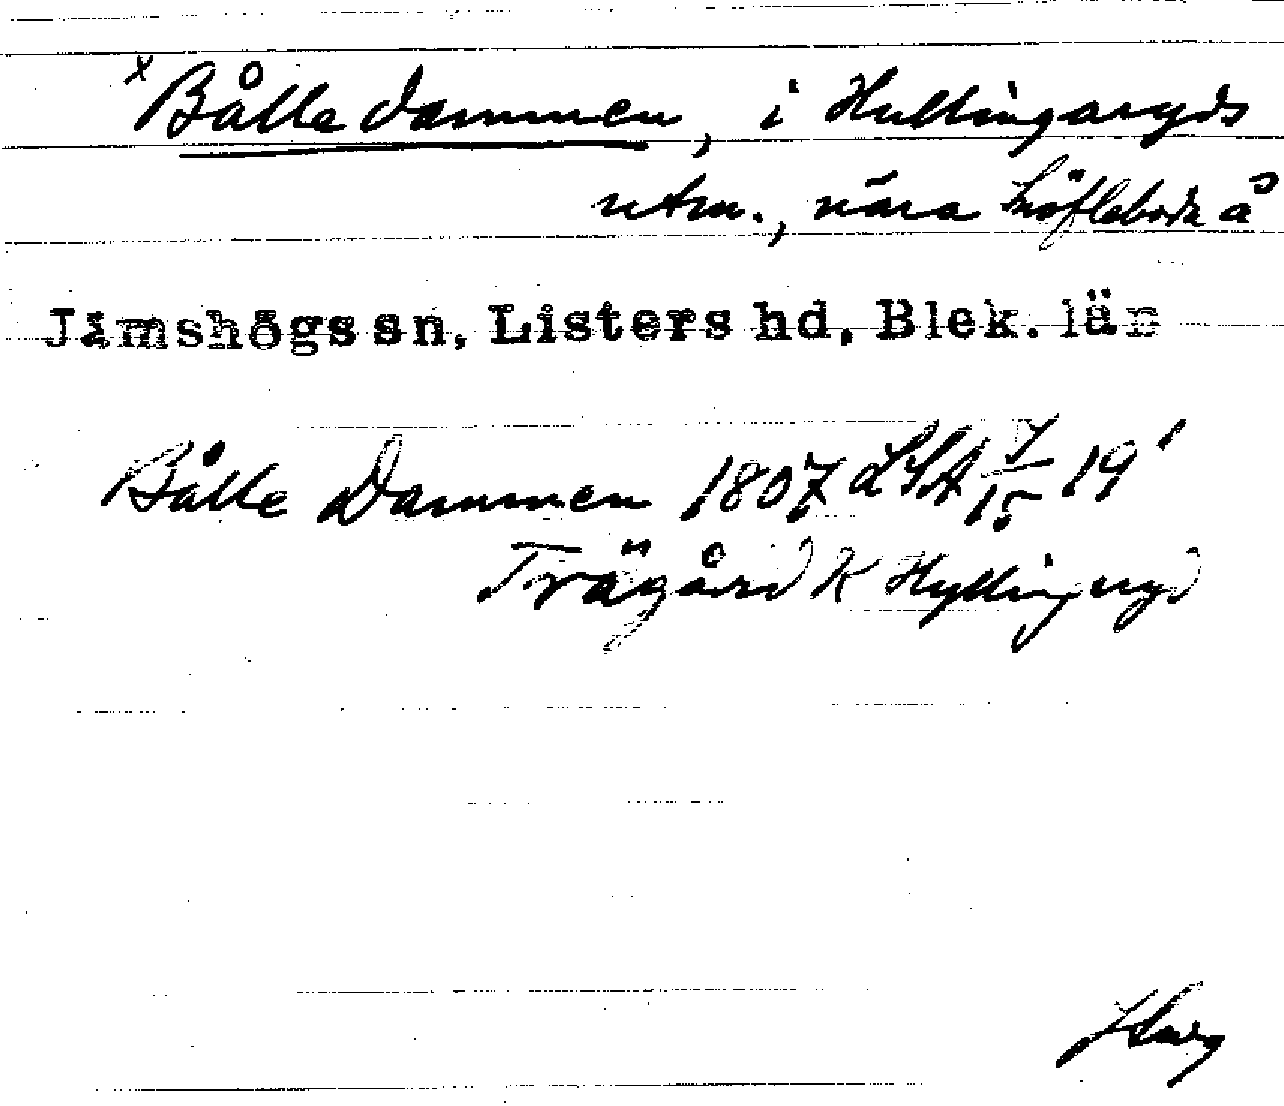 x Bålle dammen, i Hullingaryds
utm., nära Snöflebodа å
Jämshögs sn, Listers hd, Blek. län
Bålle Dammen 1807 LSA 7/15 19'
Trägård K Hyllingryd